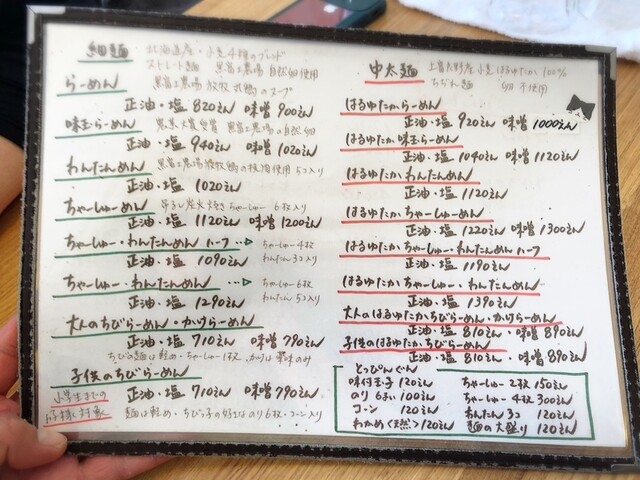 細麺 北海道産・小麦4種のブレンド
ストレート麺 黒富士農場 自然卵使用
らーめん 黒富士農場 放牧鶏のスープ
正油・塩 820えん 味噌 900えん
味玉らーめん 農業大賞受賞 黒富士農場の自然卵
正油・塩 940えん 味噌 1020えん
わんたんめん 黒富士農場放牧鶏の 使用 5コ入り
正油・塩 1020えん
ちゃーしゅーめん 吊るし炭火焼き ちゃーしゅー 6枚入り
正油・塩 1120えん 味噌 1200えん
ちゃーしゅー・わんたんめん ハーフ ちゃーしゅー 4枚
わんたん3コ入り
正油・塩 1090えん
ちゃーしゅー・わんたんめん ちゃーしゅー 6枚
わんたん 5コ入り
正油・塩 1290えん
大人のちびらーめん・かけらーめん
正油・塩 710えん 味噌 790えん
ちびの麺は軽め・ちゃーしゅー1枚、かけは薬味のみ
子供のちびらーめん
小学生までのお子様対象
正油・塩 710えん 味噌 790えん
麺は軽め・ちびっ子の好きなのり6枚・コーン入り
中太麺 上富良野産小麦はるゆたか100%
ちぢれ麺 卵不使用
はるゆたからーめん
正油・塩 920えん 味噌 1000えん
はるゆたか味玉らーめん
正油・塩 1040えん 味噌 1120えん
はるゆたかわんたんめん
正油・塩 1120えん
はるゆたかちゃーしゅーめん
正油・塩 1220えん 味噌 1300えん
はるゆたかちゃーしゅー・わんたんめん ハーフ
正油・塩 1190えん
はるゆたかちゃーしゅー・わんたんめん
正油・塩 1390えん
大人のはるゆたかちびらーめん・かけらーめん
正油・塩 810えん・味噌 890えん
子供のはるゆたかちびらーめん
正油・塩 810えん・味噌 890えん
とっぴんぐ
味付玉子 120えん
のり 6まい 100えん
コーン 120えん
わかめ<天然> 120えん
ちゃーしゅー 2枚 150えん
ちゃーしゅー 4枚 300えん
わんたん 3コ 120えん
麺の大盛り 120えん